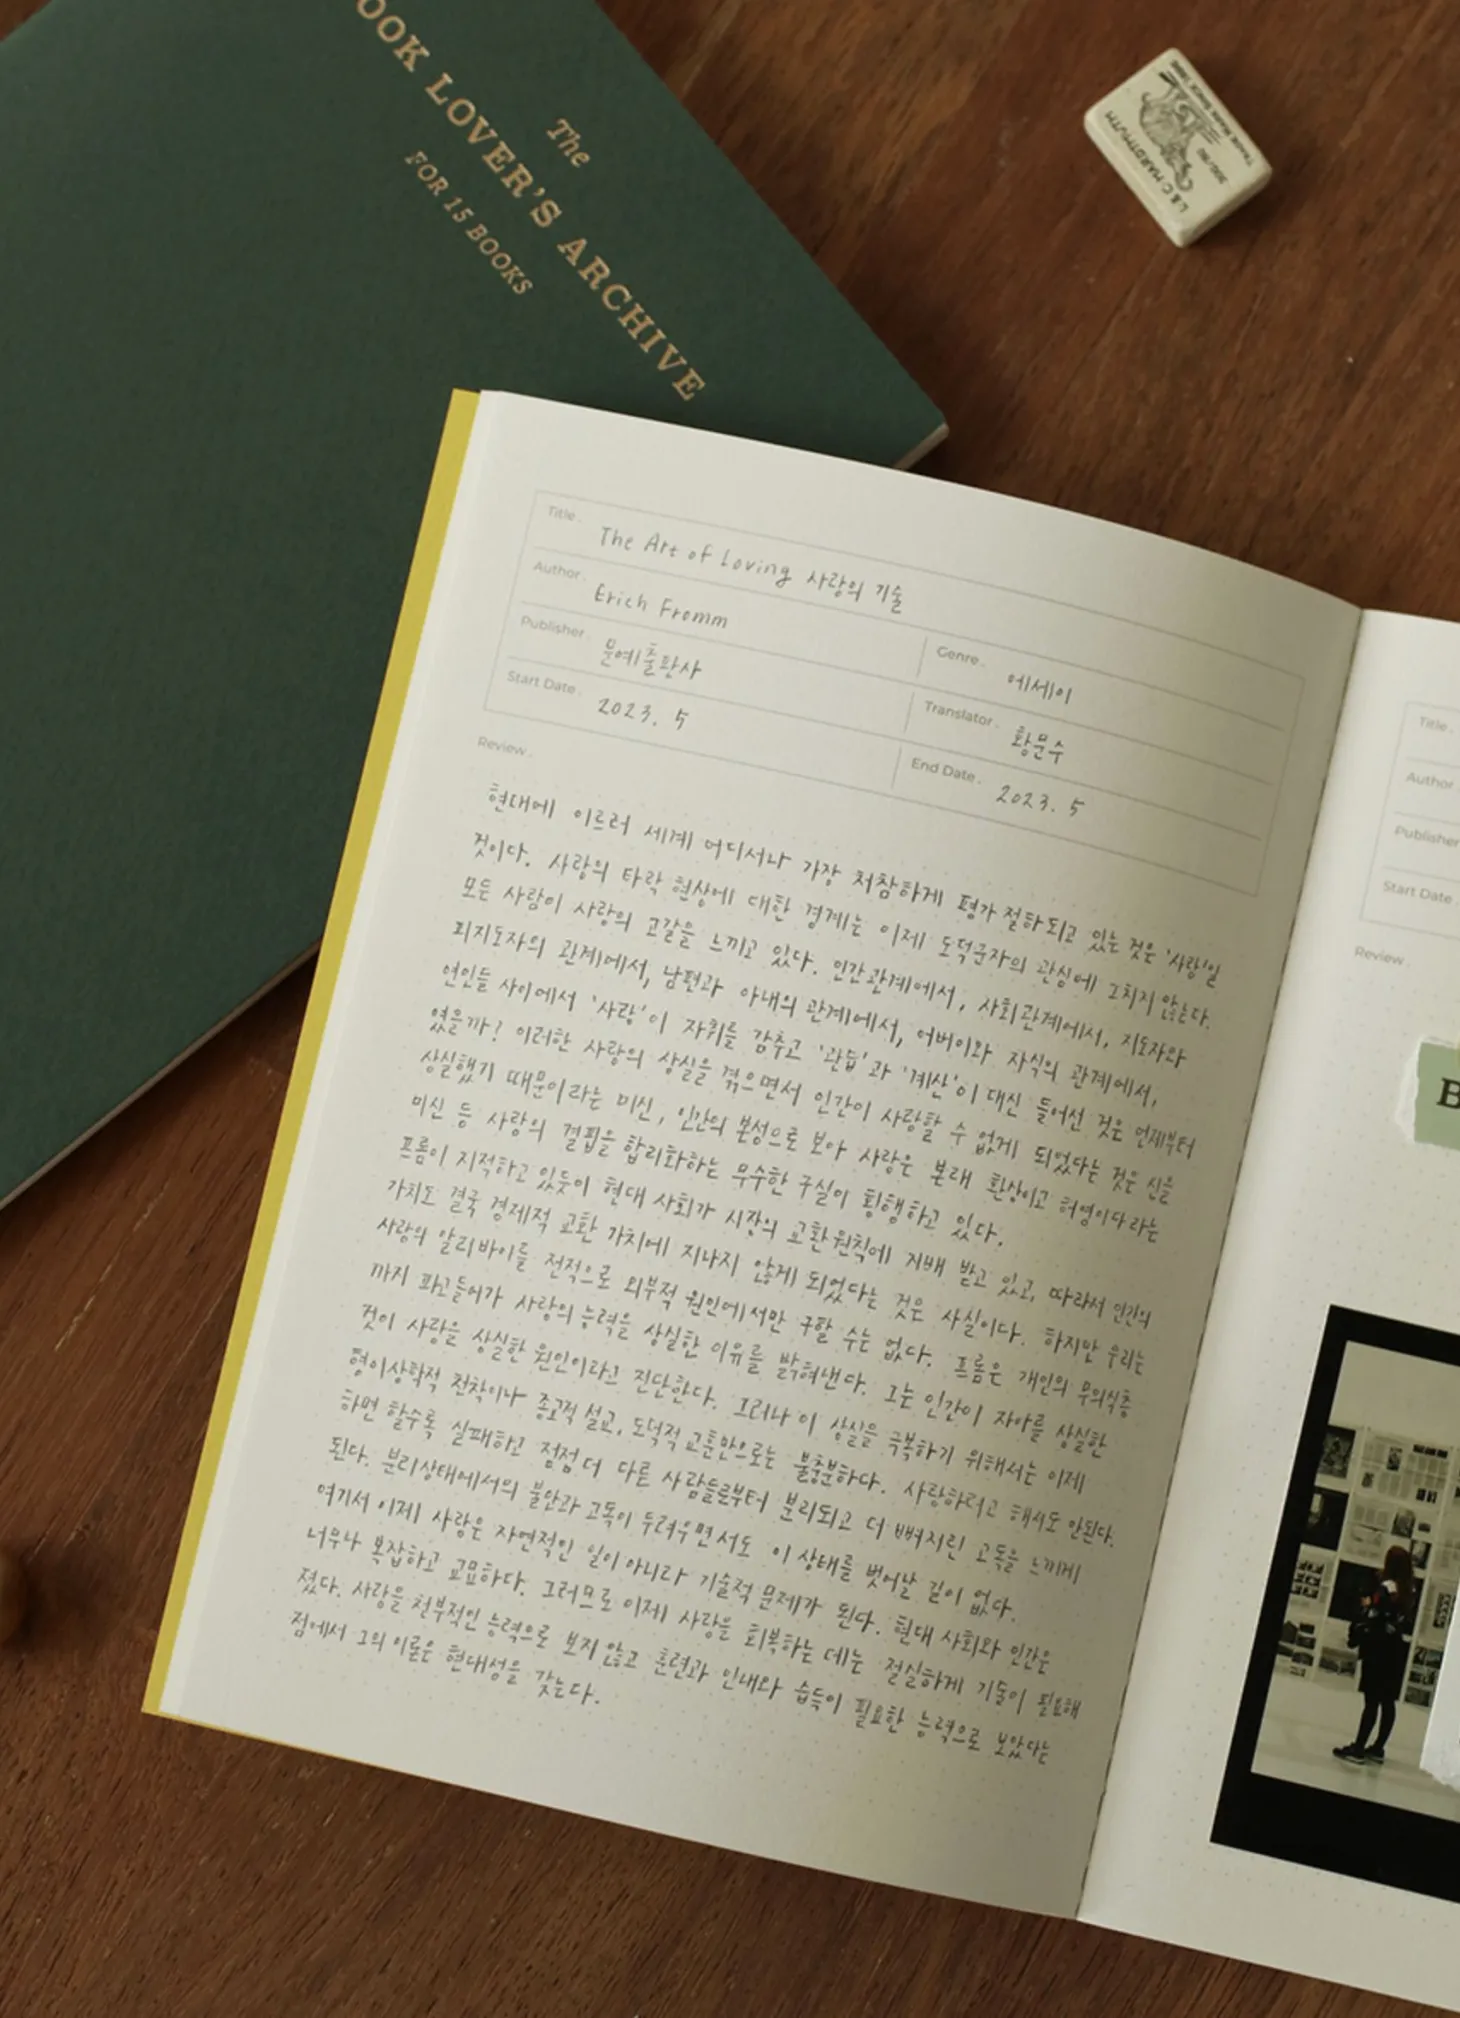 The
OOK LOVER'S ARCHIVE
FOR 15 BOOKS
L.& C. HARDTMUTH
300/80
Title. The Art of Loving 사랑의 기술
Author. Erich Fromm
Genre. 에세이
Publisher. 문예출판사
Translator. 황문수
Start Date. 2023. 5
End Date. 2023. 5
Review.
현대에 이르러 세계 어디서나 가장 처참하게 평가 절하되고 있는 것은 '사랑'일
것이다. 사랑의 타락 현상에 대한 경계는 이제 도덕군자의 관심에 그치지 않는다.
모든 사람이 사랑의 고갈을 느끼고 있다. 인간관계에서, 사회관계에서, 지도자와
피지도자의 관계에서, 남편과 아내의 관계에서, 어버이와 자식의 관계에서,
연인들 사이에서 '사랑'이 자취를 감추고 '관습'과 '계산'이 대신 들어선 것은 언제부터
였을까? 이러한 사랑의 상실을 겪으면서 인간이 사랑할 수 없게 되었다는 것은 신을
상실했기 때문이라는 미신, 인간의 본성으로 보아 사랑은 본래 환상이고 허영이다라는
미신 등 사랑의 결핍을 합리화하는 무수한 구실이 횡행하고 있다.
프롬이 지적하고 있듯이 현대 사회가 시장의 교환원칙에 지배 받고 있고, 따라서 인간의
가치도 결국 경제적 교환 가치에 지나지 않게 되었다는 것은 사실이다. 하지만 우리는
사랑의 알리바이를 전적으로 외부적 원인에서만 구할 수는 없다. 프롬은 개인의 무의식층
까지 파고들어가 사랑의 능력을 상실한 이유를 밝혀낸다. 그는 인간이 자아를 상실한
것이 사랑을 상실한 원인이라고 진단한다. 그러나 이 상실을 극복하기 위해서는 이제
형이상학적 천착이나 종교적 설교, 도덕적 교훈만으로는 불충분하다. 사랑하려고 해서도 안된다.
하면 할수록 실패하고 점점 더 다른 사람들로부터 분리되고 더 뼈저린 고독을 느끼게
된다. 분리상태에서의 불안과 고독이 두려우면서도 이 상태를 벗어날 길이 없다.
여기서 이제 사랑은 자연적인 일이 아니라 기술적 문제가 된다. 현대 사회와 인간은
너무나 복잡하고 교묘하다. 그러므로 이제 사랑을 회복하는 데는 절실하게 기술이 필요해
졌다. 사랑을 천부적인 능력으로 보지 않고 훈련과 인내와 습득이 필요한 능력으로 보았다는
점에서 그의 이론은 현대성을 갖는다.
Title.
Author
Publisher
Start Date
Review.
B